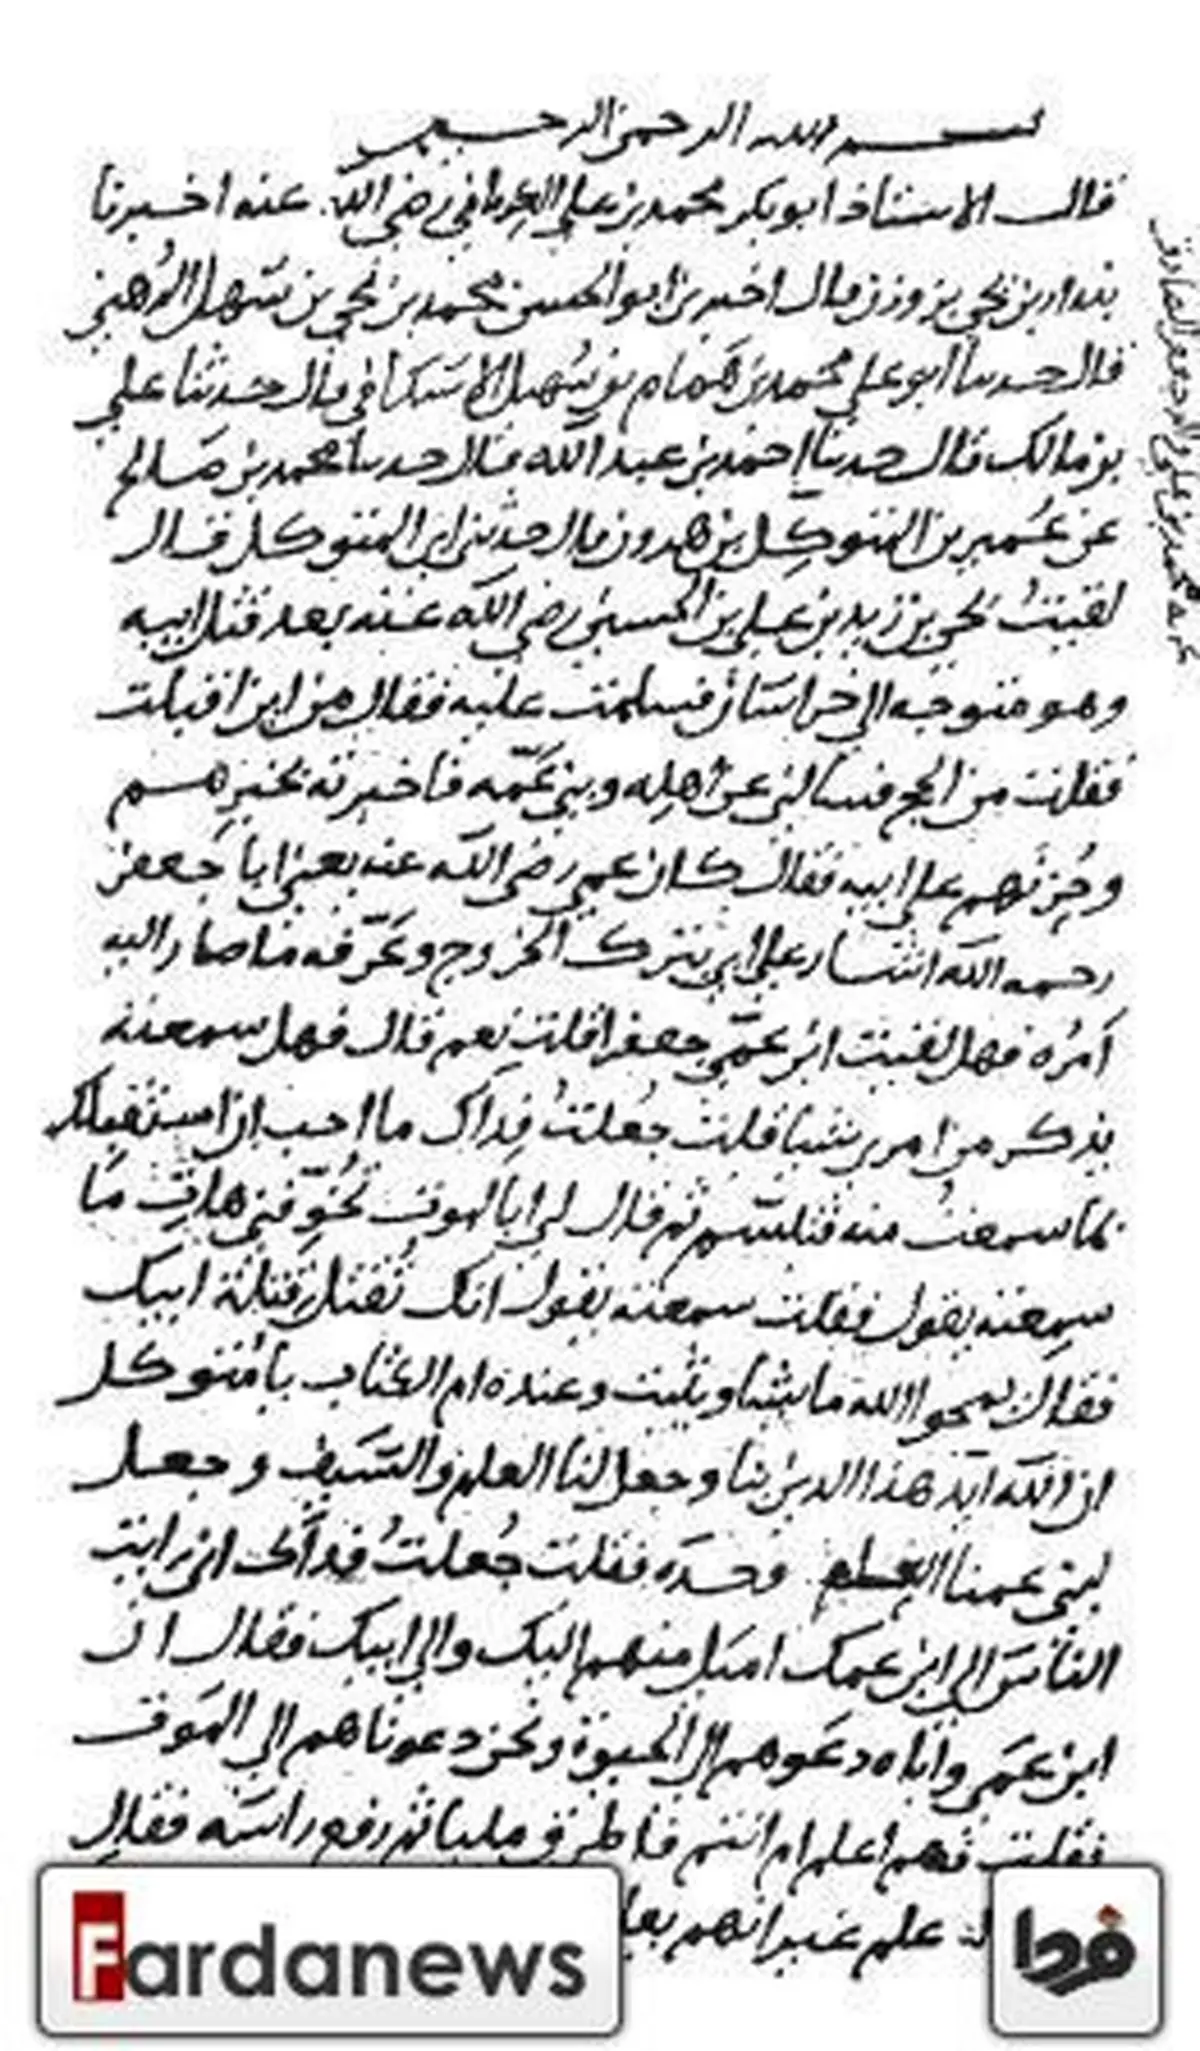 بسم الله الرحمن الرحيم
قال الاستاذ ابو بكر محمد بن علي رضي الله عنه اخبرنا
بندار بن يحيى بن وزن قال اخبرنا ابو الحسن محمد بن يحيى بن سهل الرهني
قال حدثنا ابو علي محمد بن همام بن سهيل الاسكافي قال حدثنا علي
بن مالك قال حدثنا احمد بن عبد الله قال حدثنا محمد بن صالح
عن عمير بن المتوكل بن هرون قال حدثني ابي المتوكل قال
لقيت يحيى بن زيد بن علي بن الحسين رضي الله عنه بعد قتل ابيه
وهو متوجه الى خراسان فسلمت عليه فقال من اين اقبلت
فقلت من الحج فسالني عن اهله وبني عمه فاخبرته بخبرهم
وحزنهم على ابيه فقال كان عمي رضي الله عنه يعني ابا جعفر
رحمه الله اشار على ابي بترك الخروج وعرفه ما صار اليه
امره فهل لقيت ابن عمي جعفرا قلت نعم قال فهل سمعته
يذكر من امري شيا قلت جعلت فداك ما احب ان استقبلك
بما سمعت منه فتبسم ثم قال لي ابالموت تخوفني هات ما
سمعته يقول فقلت سمعته يقول انك تقتل قتلة ابيك
فقال يمحوا الله ما يشا ويثبت وعنده ام الكتاب يا متوكل
ان الله ايد هذا الدين بنا وجعل لنا العلم والسيف وجعل
لبني عمنا العلم وحده فقلت جعلت فداك اني رايت
الناس الى ابن عمك اميل منهم اليك والى ابيك فقال ان
ابن عمي واباه دعوهم الى الحيوة ونحن دعوناهم الى الموت
فقلت فهم اعلم ام انتم فاطرق مليا ثم رفع راسه فقال
علم غير انهم
Fardanews
فردا